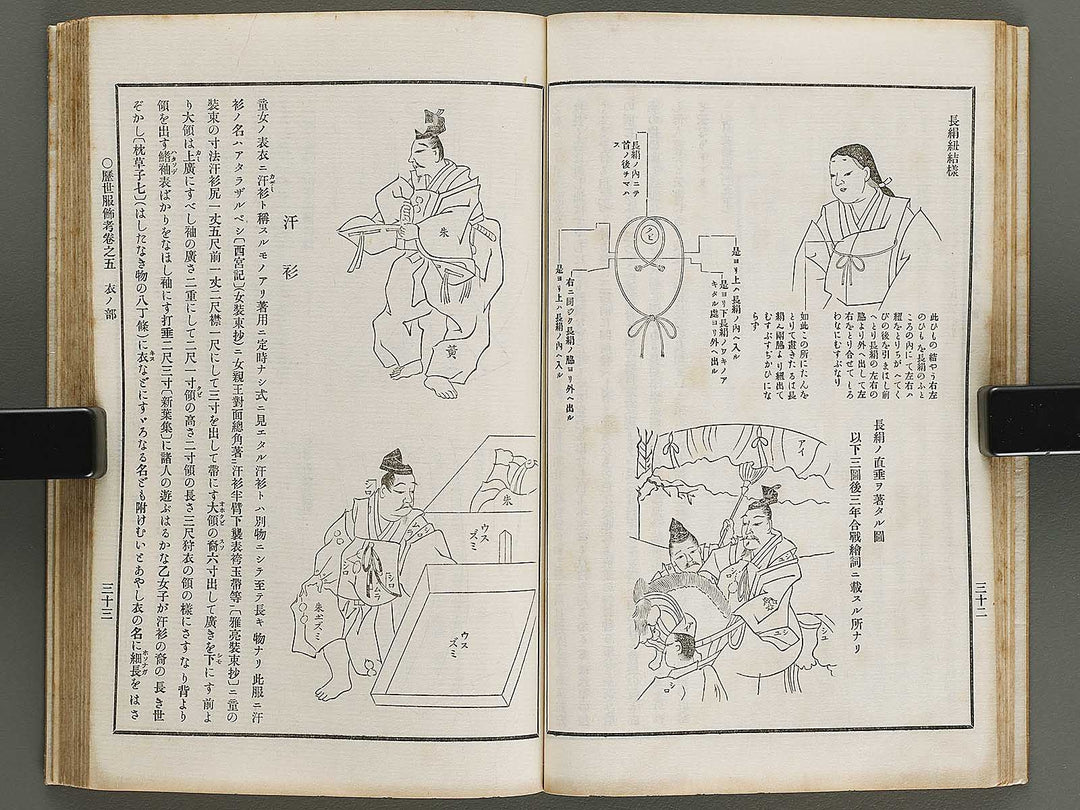 長絹紐結様
此ひもの結やう右左
のひもを長絹のふと
ころの内にて左右ハ
紐をとりちがへてく
びの後を引まはし前
へとり長絹の左右の
脇より外へ出して左
右をとり合せてしろ
わなにむすぶなり
如此この所にたんを
とりて畫きたるは長
絹ん兩脇より紐出て
むすぶすぢかひにな
らず
長絹ノ内ニテ
首ノ後チマハ
ス
是ヨリ上ハ長絹ノ内ヘ入ル
是ヨリ下長絹ノワキノア
キタル處ヨリ外ヘ出ル
右ニ同ジク長絹ノ脇ヨリ外ヘ出ル
是ヨリ上ハ長絹ノ内ヘ入ル
長絹ノ直垂ヲ著タル圖
以下三圖後三年合戰繪詞ニ載スル所ナリ
アイ
シロ
ユシ
シユ
シロ
三十二
朱
黄
朱
ウス
ズミ
シロ
ムラ
朱エズミ
ウス
ズミ
汗衫
童女ノ表衣ニ汗衫ト稱スルモノアリ著用ニ定時ナシ式ニ見エタル汗衫トハ別物ニシラテ至テ長キ物ナリ此服ニ汗
カザミ
衫ノ名ハアタラザルベシ〔西宮記〕〔女裝束抄〕ニ女親王對面總角著ニ汗衫半臂下襲表袴玉帶等ニ〔雅亮裝束抄〕ニ童の
裝束の寸法汗衫尻一丈五尺前一丈二尺襟一尺にして三寸を出して帶にす大領の裔六寸出して廣きを下にす前よ
り大領は上廣にすべし袖の廣さ二重にして二尺一寸領の高さ二寸領の長さ三尺狩衣の領の様にさすなり背より
領を出す鰭袖表ばかりをなほし袖にす打垂二尺三寸〔新葉集〕に諸人の遊ぶはるかな乙女子が汗衫の裔の長き世
ぞかし〔枕草子七〕〔はしたなき物の八丁條〕に衣などにすゞろなる名ども附けむいとあやし衣の名に細長をはさ
ホソナガ
○歷世服飾考卷之五　衣ノ部
三十三